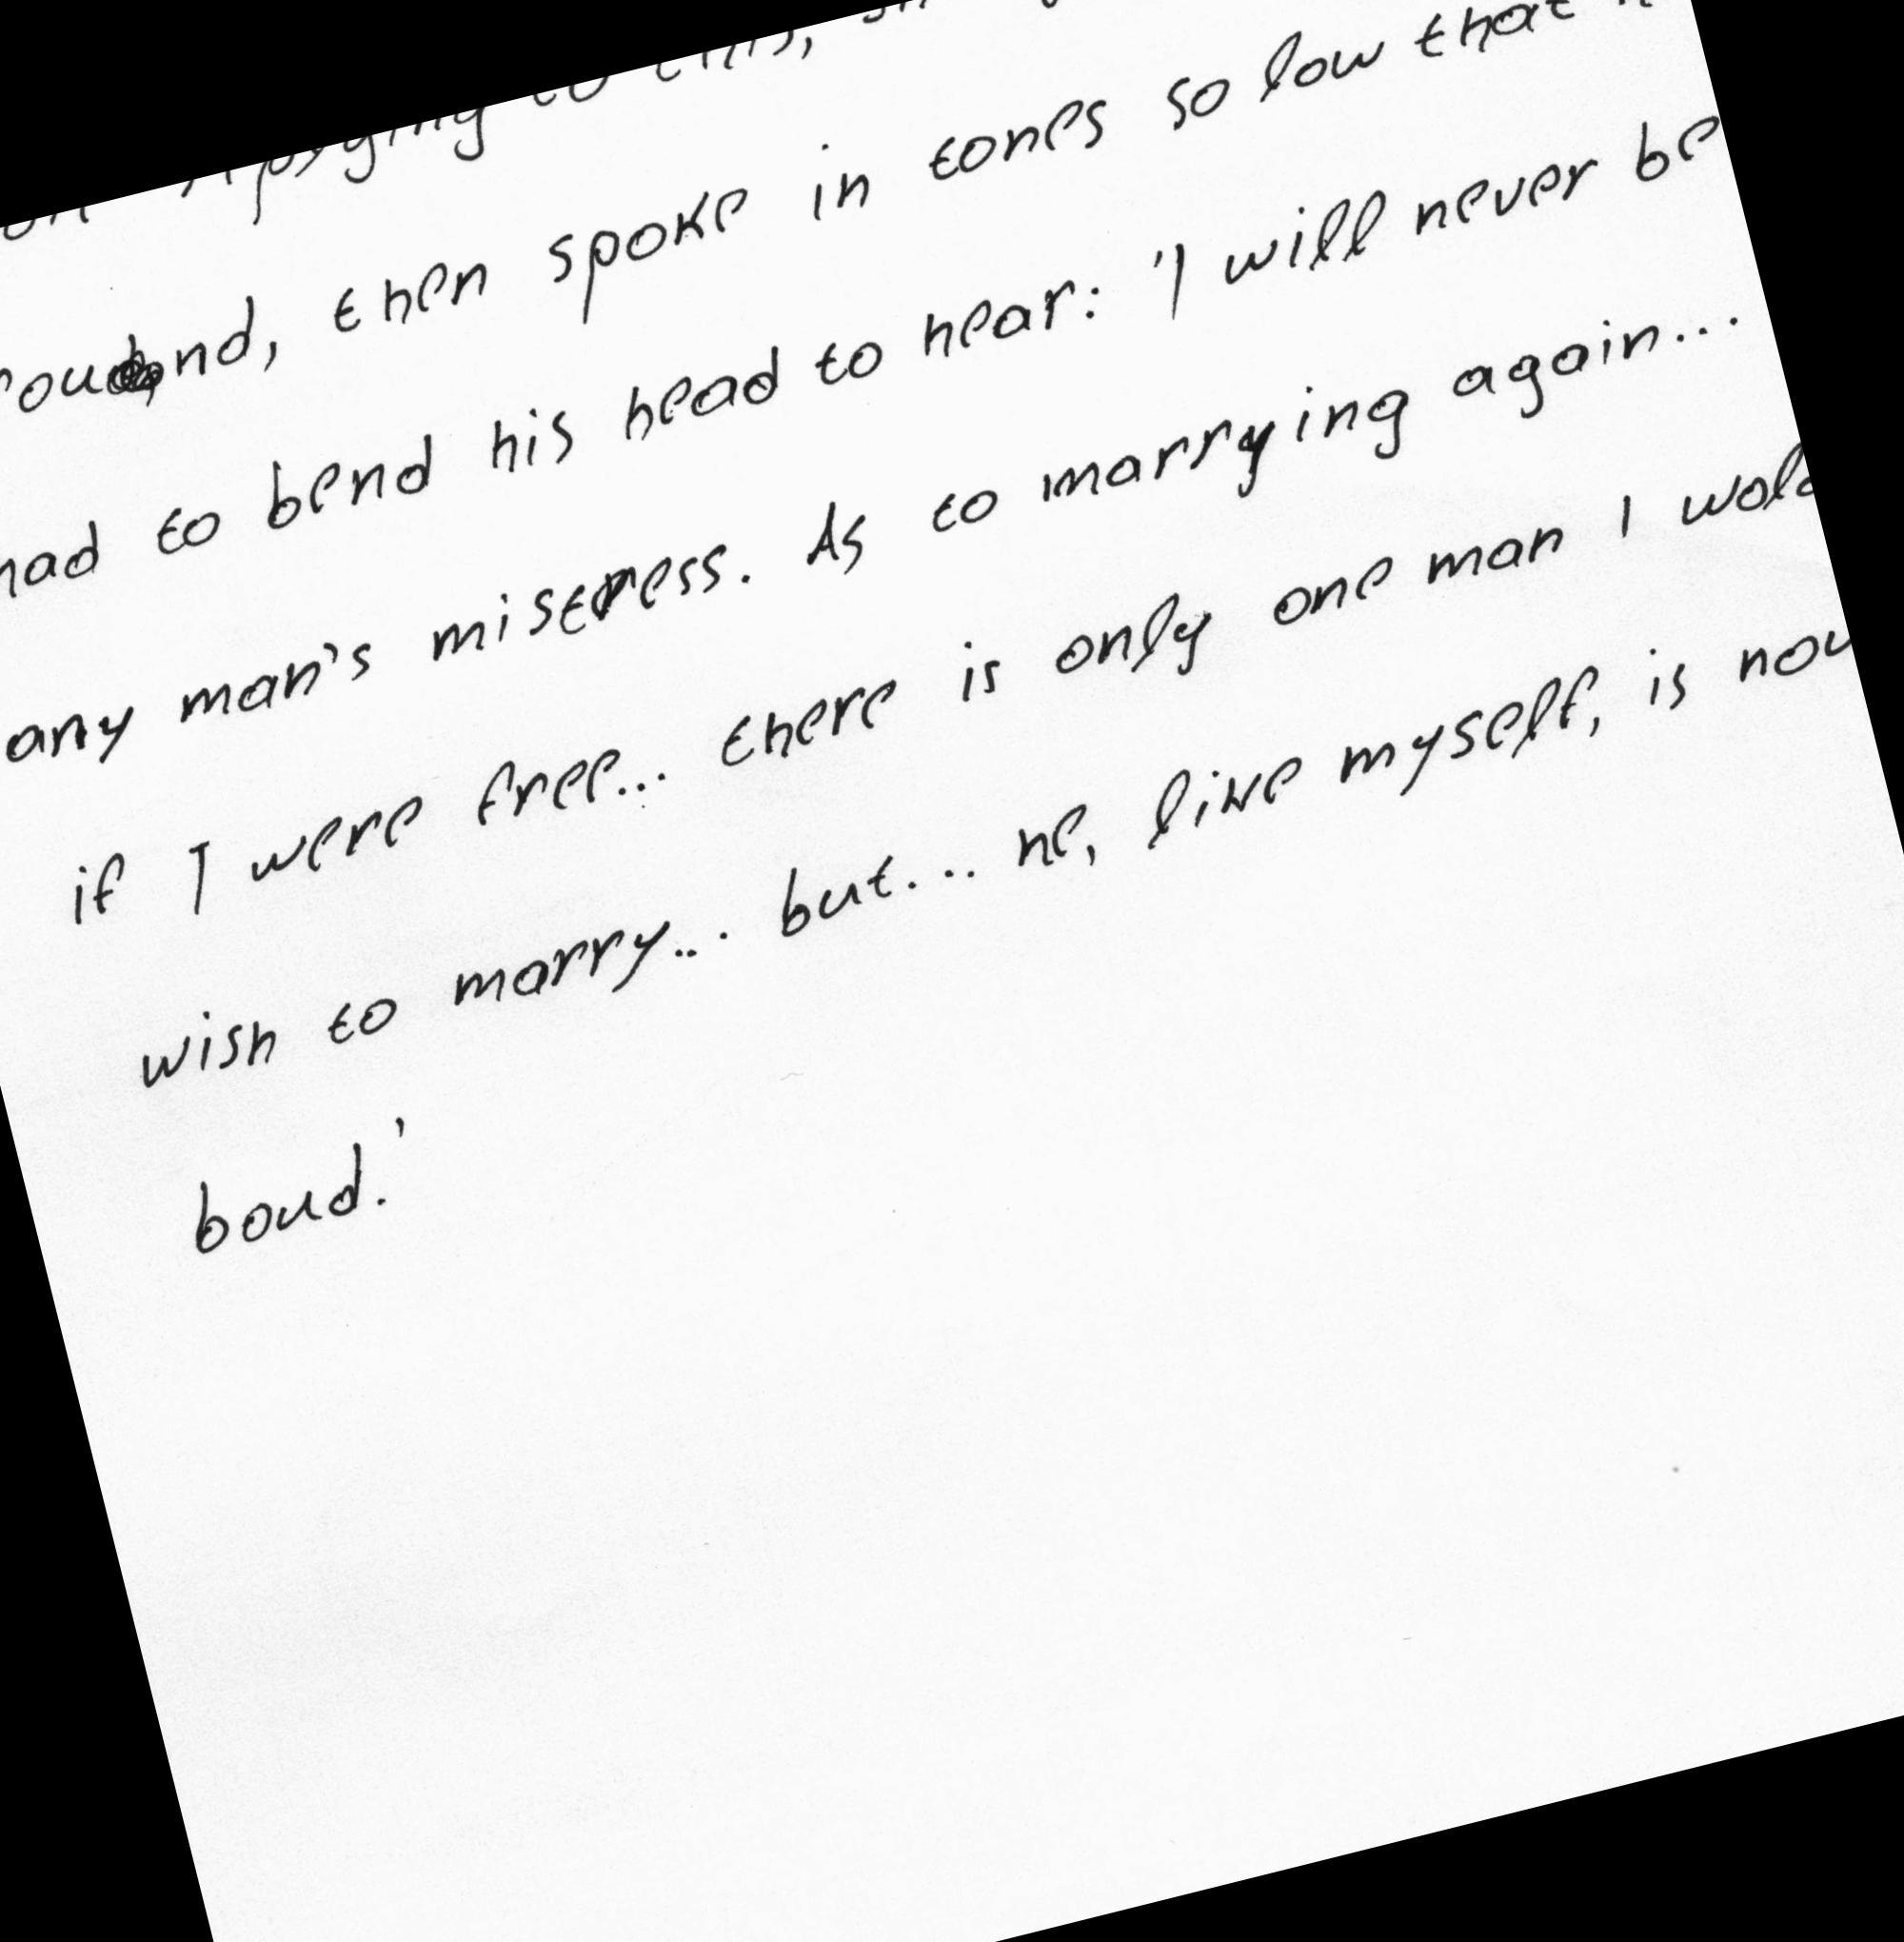 to this,
then spoke in tones so low that
had to bend his head to hear: 'I will never be
any man's mistress. As to marrying again...
if I were free... there is only one man I
wish to marry... but... he, like myself, is
boud.'